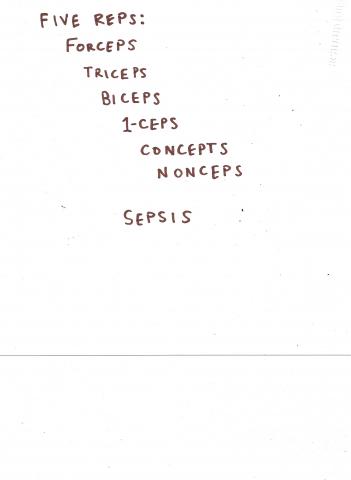 FIVE REPS:
FORCEPS
TRICEPS
BICEPS
1-CEPS
CONCEPTS
NONCEPS
SEPSIS